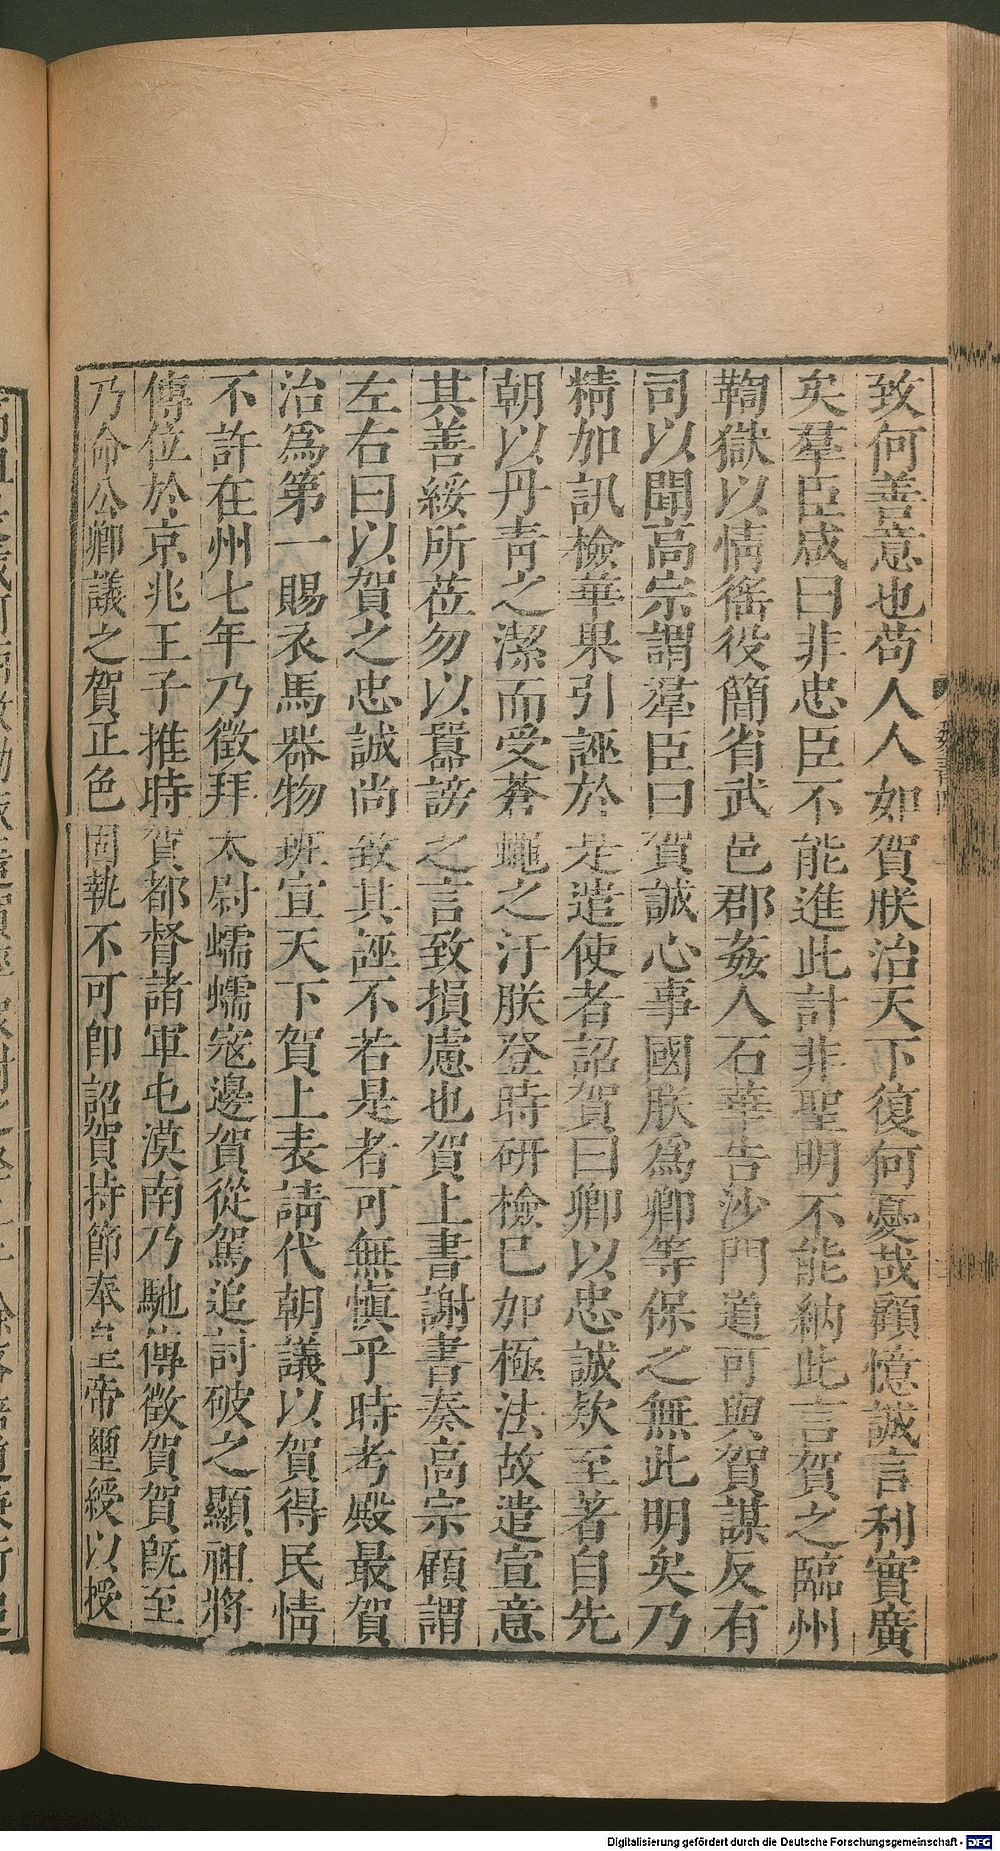 致何善意也苟人人如賀朕治天下復何憂哉顧憶誠言利實廣
矣羣臣咸曰非忠臣不能進此計非聖明不能納此言賀之臨州
鞫獄以情徭役簡省武邑郡姦人石華告沙門道可與賀謀反有
司以聞高宗謂羣臣曰賀誠心事國朕爲卿等保之無此明矣乃
精加訊檢華果引誣於是遣使者詔賀曰卿以忠誠款至著自先
朝以丹靑之潔而受蒼蠅之汙朕登時研檢已加極法故遣宣意
其善綏所莅勿以嚚謗之言致損慮也賀上書謝書奏高宗顧謂
左右曰以賀之忠誠尚致其誣不若是者可無愼乎時考殿最賀
治爲第一賜衣馬器物班宣天下賀上表請代朝議以賀得民情
不許在州七年乃徵拜太尉蠕蠕寇邊賀從駕追討破之顯祖將
傳位於京兆王子推時賀都督諸軍屯漠南乃馳傳徵賀賀旣至
乃命公卿議之賀正色固執不可卽詔賀持節奉皇帝璽綬以授
Digitalisierung gefördert durch die Deutsche Forschungsgemeinschaft - DFG